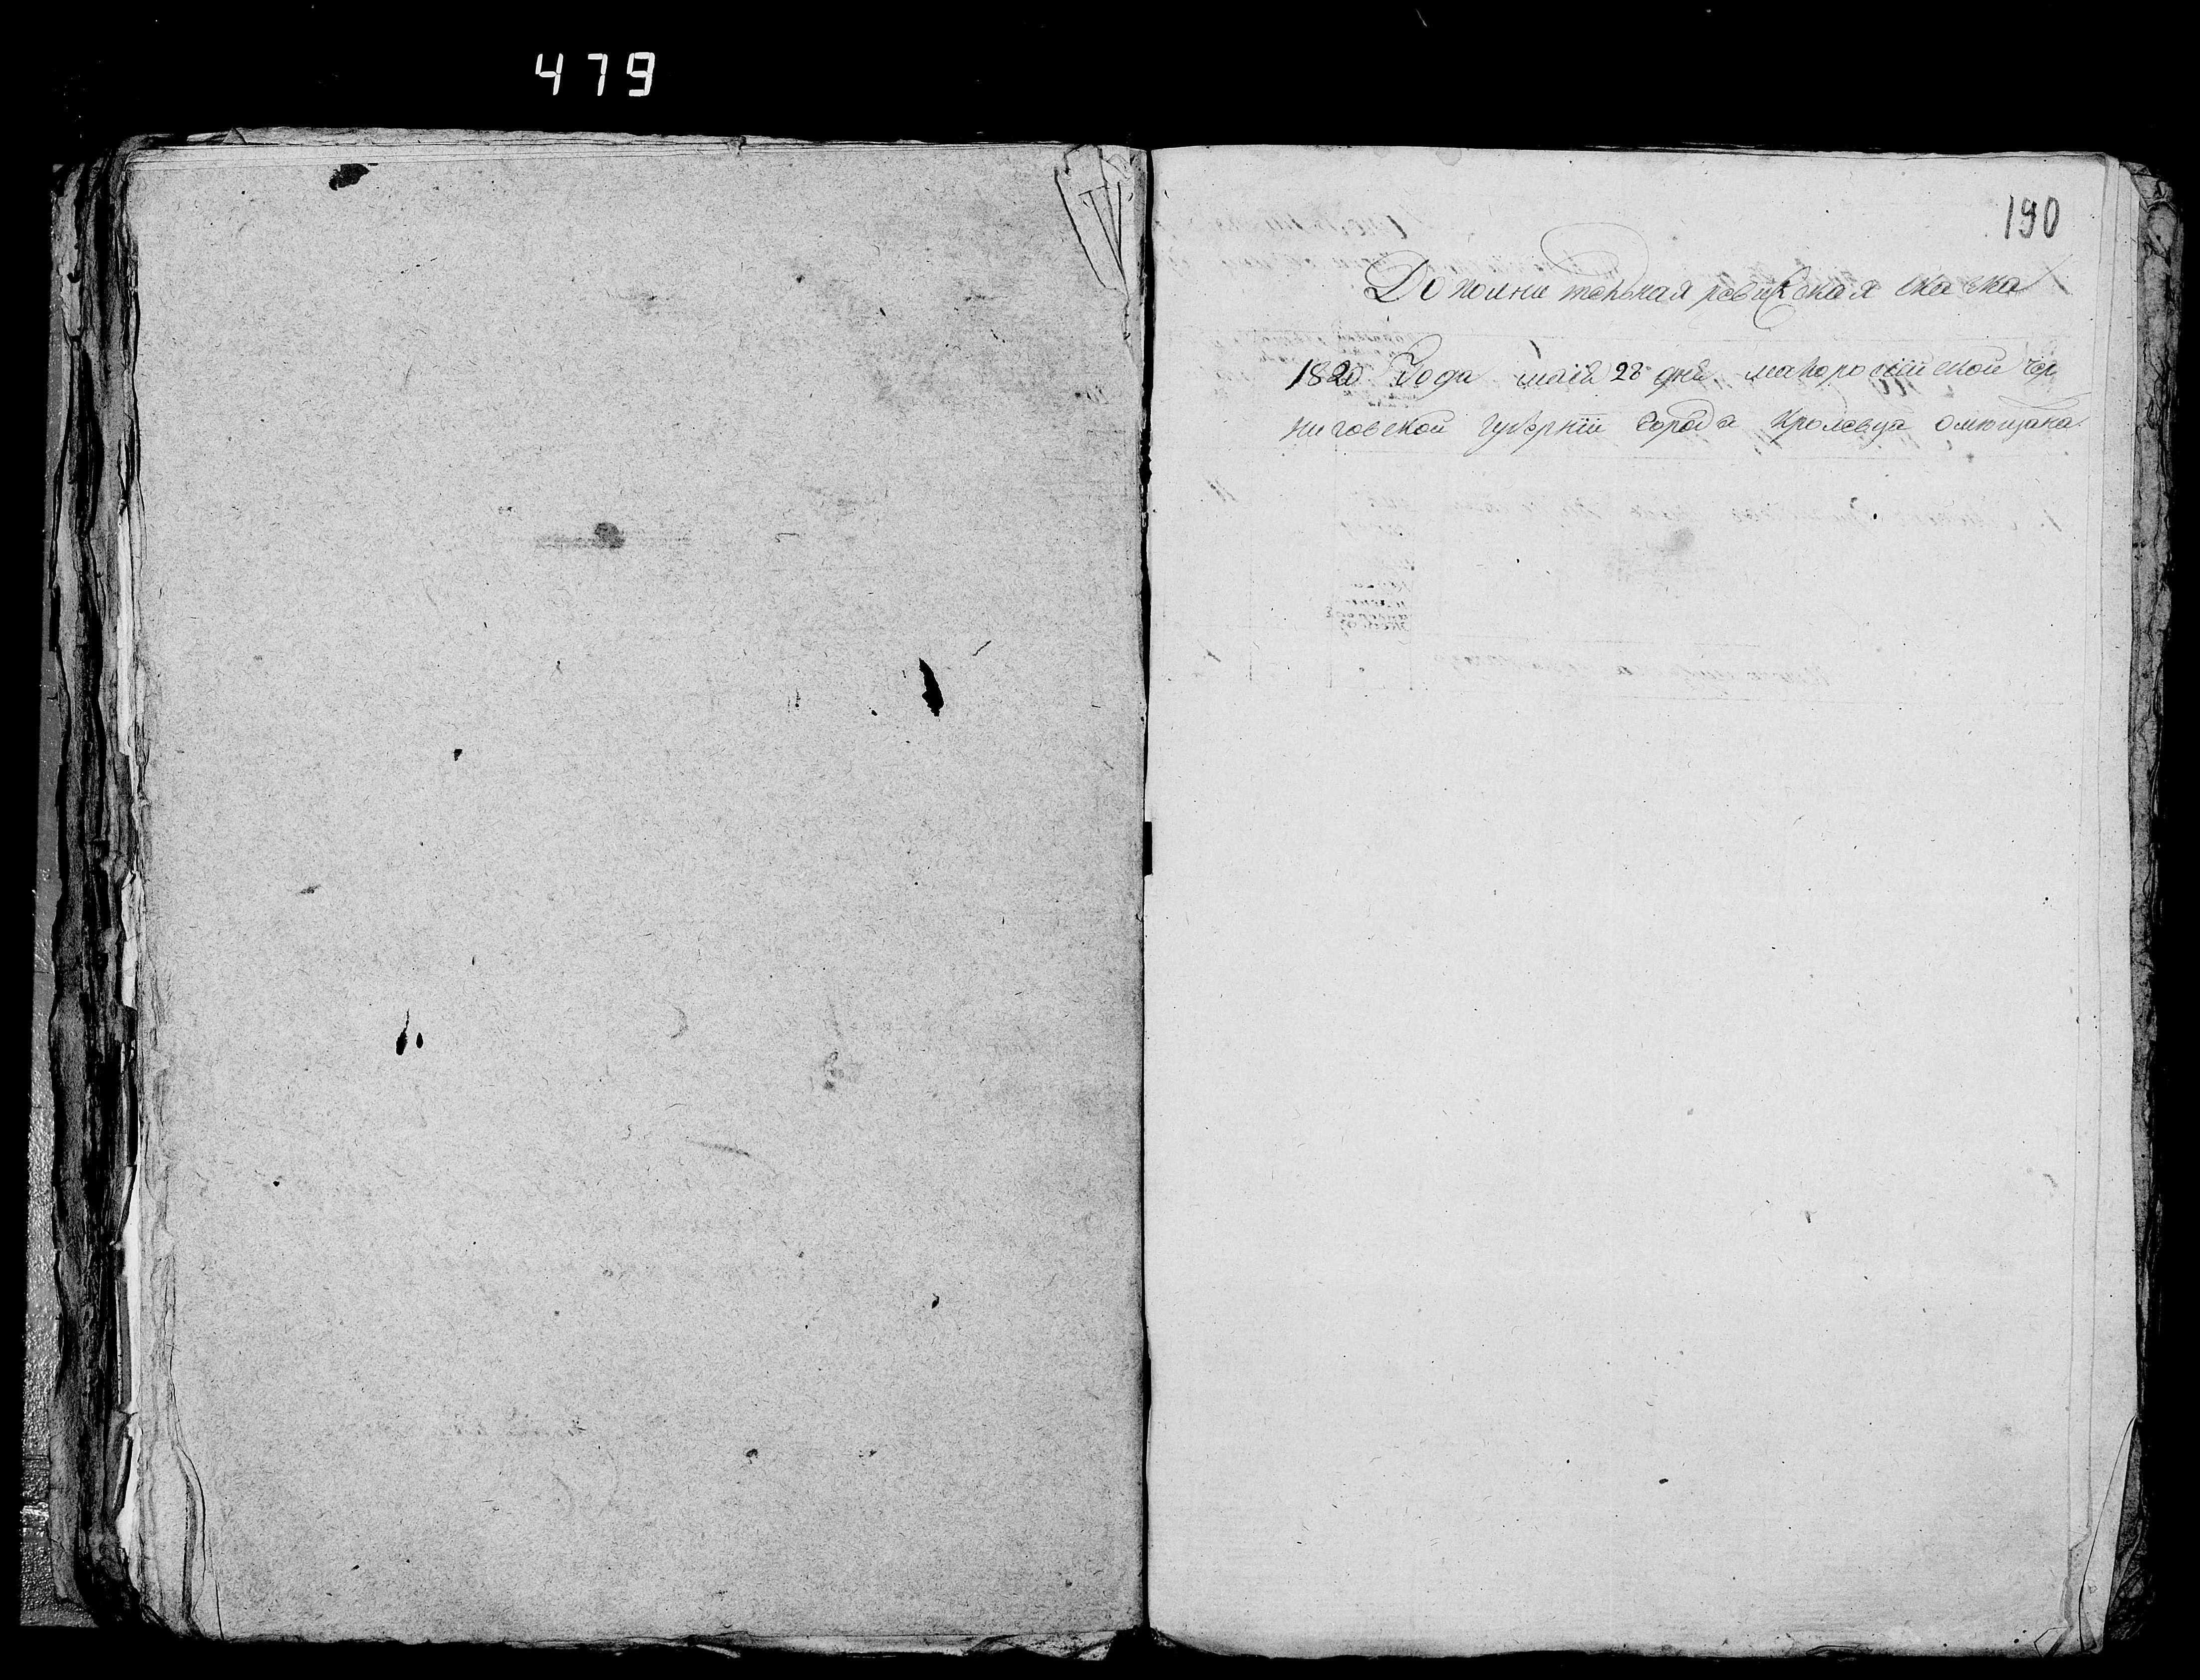 479
190
Дополнительная ревизская скаска
1820 Года маія 28 дня малоросійской Чер
ниговской губернїи города Кролевца о мющана